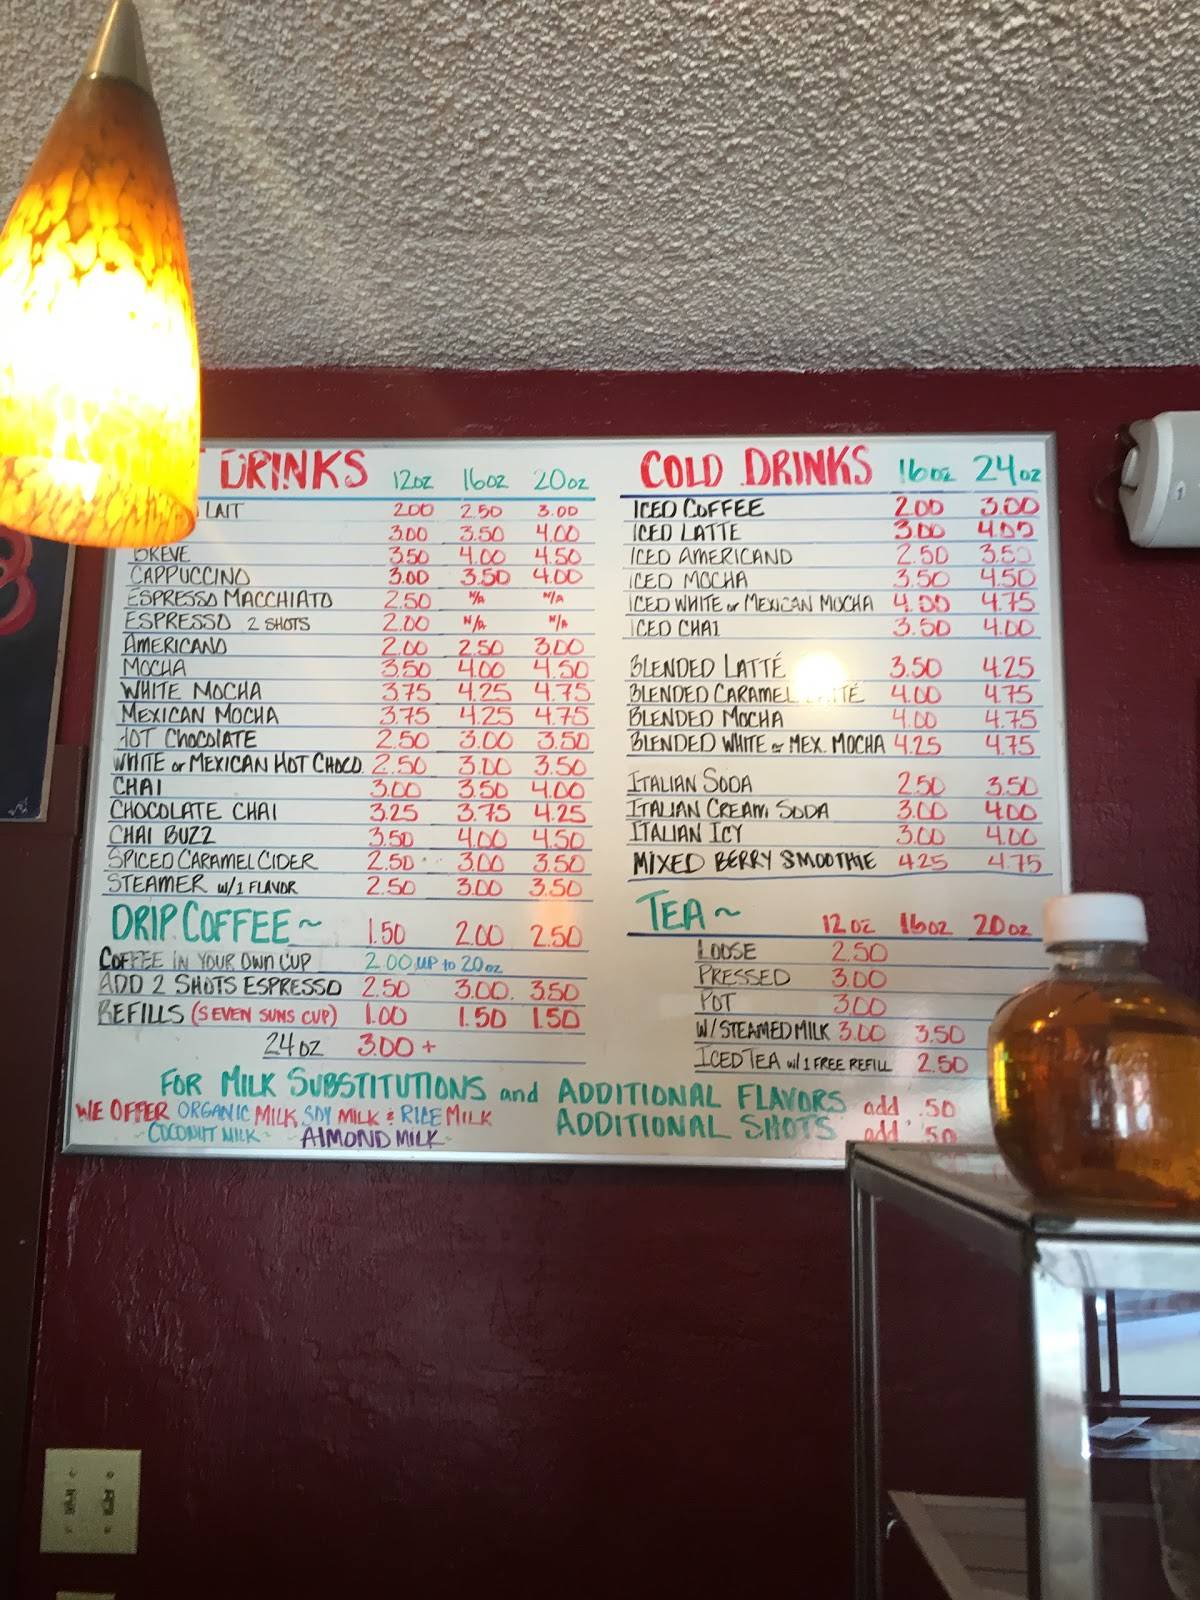 DRINKS 12oz 16oz 20oz
LAIT 2.00 2.50 3.00
3.00 3.50 4.00
BREVE 3.50 4.00 4.50
CAPPUCCINO 3.00 3.50 4.00
ESPRESSO MACCHIATO 2.50 N/A N/A
ESPRESSO 2 SHOTS 2.00 N/A N/A
AMERICANO 2.00 2.50 3.00
MOCHA 3.50 4.00 4.50
WHITE MOCHA 3.75 4.25 4.75
MEXICAN MOCHA 3.75 4.25 4.75
HOT CHOCOLATE 2.50 3.00 3.50
WHITE or MEXICAN HOT CHOCO. 2.50 3.00 3.50
CHAI 3.00 3.50 4.00
CHOCOLATE CHAI 3.25 3.75 4.25
CHAI BUZZ 3.50 4.00 4.50
SPICED CARAMEL CIDER 2.50 3.00 3.50
STEAMER w/1 FLAVOR 2.50 3.00 3.50
DRIP COFFEE ~ 1.50 2.00 2.50
COFFEE IN YOUR OWN CUP 2.00 UP to 20oz
ADD 2 SHOTS ESPRESSO 2.50 3.00 3.50
REFILLS (SEVEN SUNS CUP) 1.00 1.50 1.50
24oz 3.00 +
COLD DRINKS 16oz 24oz
ICED COFFEE 2.00 3.00
ICED LATTE 3.00 4.00
ICED AMERICANO 2.50 3.50
ICED MOCHA 3.50 4.50
ICED WHITE or MEXICAN MOCHA 4.00 4.75
ICED CHAI 3.50 4.00
BLENDED LATTÉ 3.50 4.25
BLENDED CARAMEL LATTÉ 4.00 4.75
BLENDED MOCHA 4.00 4.75
BLENDED WHITE or MEX. MOCHA 4.25 4.75
ITALIAN SODA 2.50 3.50
ITALIAN CREAM SODA 3.00 4.00
ITALIAN ICY 3.00 4.00
MIXED BERRY SMOOTHIE 4.25 4.75
TEA ~ 12oz 16oz 20oz
LOOSE 2.50
PRESSED 3.00
POT 3.00
W/STEAMED MILK 3.00 3.50
ICED TEA w/1 FREE REFILL 2.50
FOR MILK SUBSTITUTIONS and ADDITIONAL FLAVORS add .50
WE OFFER ORGANIC MILK SOY MILK & RICE MILK ADDITIONAL SHOTS add .50
-COCONUT MILK- ALMOND MILK-